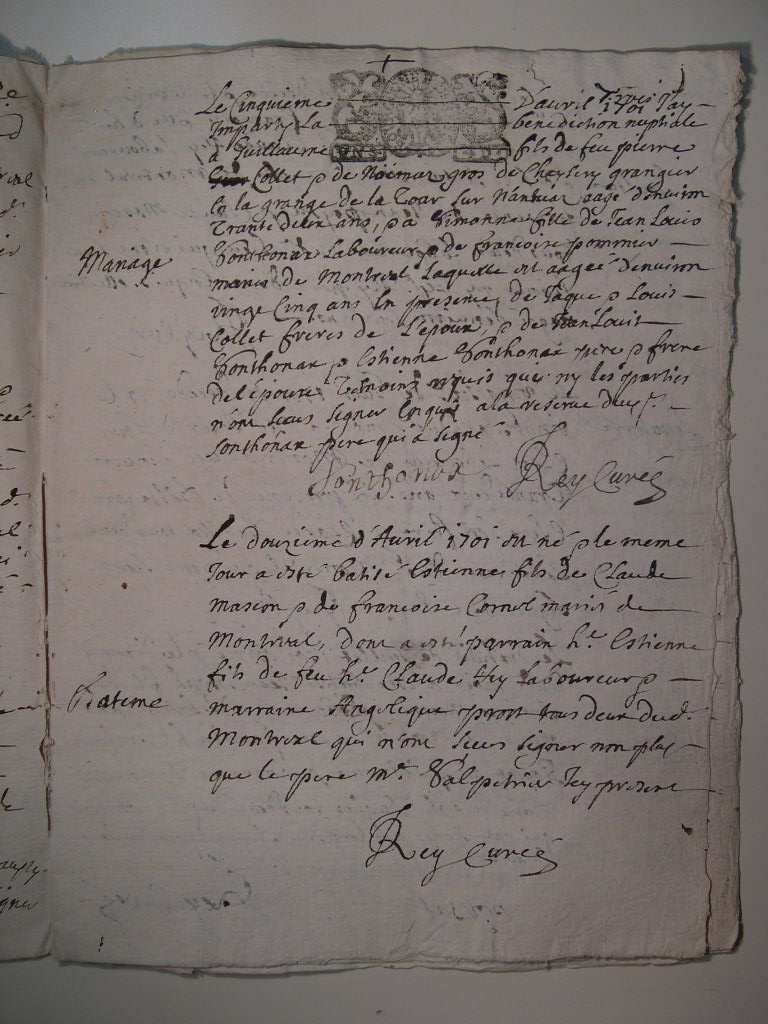 Le Cinquieme D'avril 1701 J'ay
Imparty La benediction nuptiale
a Guillaume fils de feu pierre
Collet p de gros de Chesery grangier
la grange de la Tour sur Nantua aagé d'environ
Trante deux ans, p a Simonne fille de Jean Louis
Sonthonax Laboureur p de francoise pommier
Mariage
mariés de Montreal Laquelle est aagée d'environ
vingt Cinq ans en presence, de Jaque p Louis
Collet freres de L'epoux, p de Jean Louis
Sonthonax p Estienne Sonthonax pere p frere
de l'épouse Temoins requis que ny les parties
n'ont sceus signer Enquis a la reserve dud.
sonthonax pere qui a signé
Sonthonax Rey Curé
Le douzieme d'Avril 1701 est né p le meme
Jour a esté batisé Estienne fils de Claude
p de francoise Cornet mariés de
Montreal, dont a esté parrain h.e Estienne
fils de feu h.e Claude Laboureur p
Bateme
marraine Angelique tous deux dud.
Montreal qui n'ont sceus signer non plus
que le pere M.e present
Rey Curé